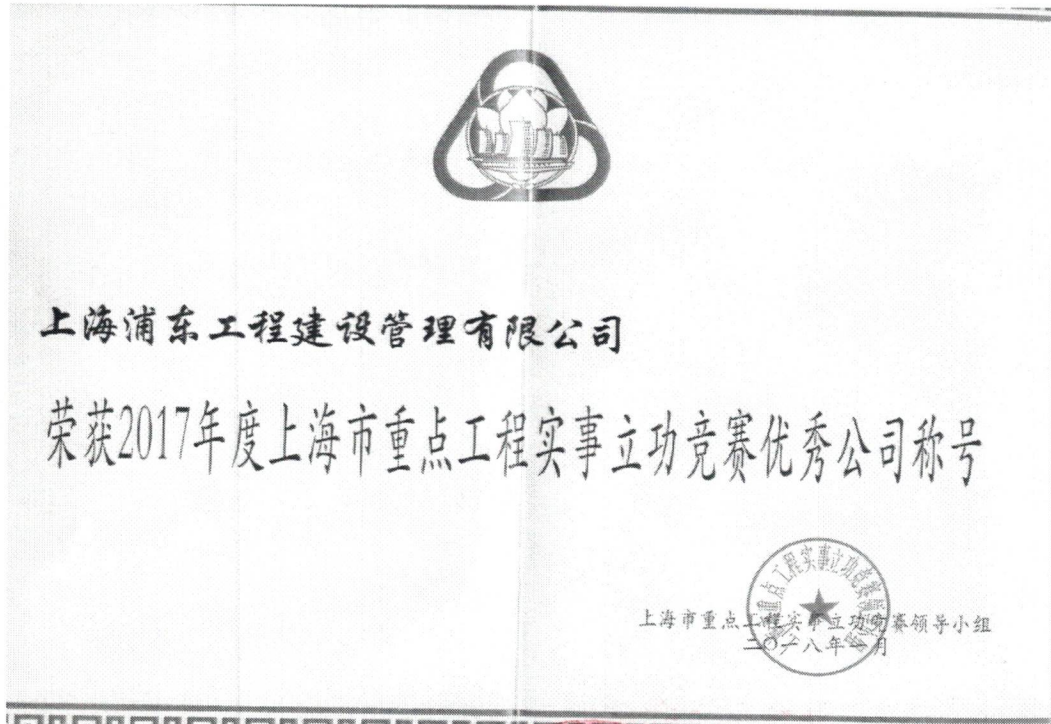 上海浦东工程建设管理有限公司
荣获2017年度上海市重点工程实事立功竞赛优秀公司称号
上海市重点工程实事立功竞赛领导小组
二〇一八年一月